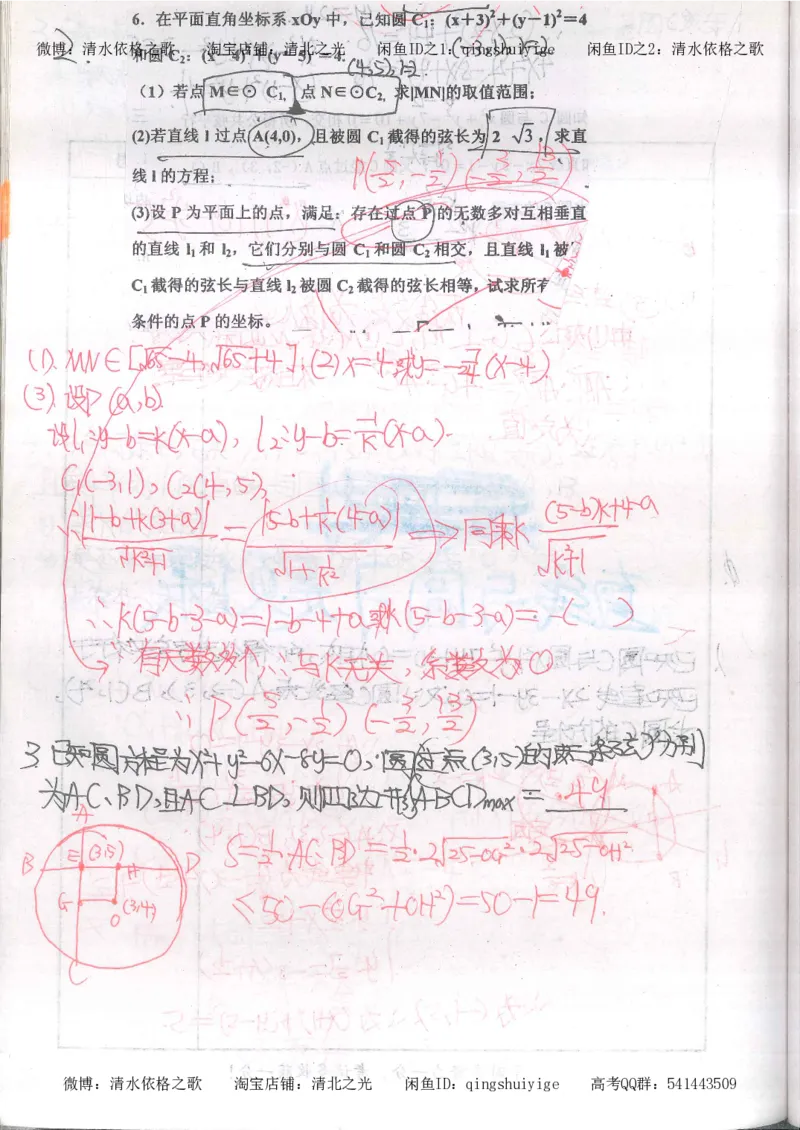 6. 在平面直角坐标系 xOy 中，已知圆 C₁：(x+3)²+(y−1)²=4
微博：清水依格之歌 淘宝店铺：清北之光 闲鱼ID之1：qingshuiyige 闲鱼ID之2：清水依格之歌
和圆 C₂：(x−4)²+(y−5)²=4.
(-3,1), r=2
(4,5), r=2
（1）若点 M∈⊙ C₁, 点 N∈⊙C₂, 求|MN|的取值范围；
(2)若直线 l 过点 A(4,0)，且被圆 C₁ 截得的弦长为 2 √3 ，求直
线 l 的方程；
P(5/2, -1/2) (-3/2, 13/2)
(3)设 P 为平面上的点，满足：存在过点 P 的无数多对互相垂直
的直线 l₁ 和 l₂，它们分别与圆 C₁ 和圆 C₂ 相交，且直线 l₁ 被
C₁ 截得的弦长与直线 l₂ 被圆 C₂ 截得的弦长相等，试求所有
条件的点 P 的坐标。
(1). MN∈[√65-4, √65+4], (2) x=4或y=-7/24(x-4)
(3). 设P(a,b)
设l₁:y-b=k(x-a), l₂:y-b=-1/k(x-a).
C₁(-3,1), C₂(4,5),
∴|1-b+k(3+a)|/√(k²+1) = |5-b+1/k(4-a)|/√(1+1/k²) → 同乘k ((5-b)k+4-a)/√(k²+1)
∴k(5-b-3-a)=1-b-4+a或k(5-b-3-a)=-( )
→ 有无数多个∴与k无关，系数为0
∴P(5/2, -1/2) (-3/2, 13/2)
3 已知圆方程为x²+y²-6x-8y=0，圆过点(3,5)的两条弦分别
为AC、BD，且AC⊥BD，则四边形ABCDmax = 49
A
B E (3,5) H D
G O (3,4)
C
S=1/2·AC·BD=1/2·2√(25-OG²)·2√(25-OH²)
≤50-(OG²+OH²)=50-1=49.
微博：清水依格之歌 淘宝店铺：清北之光 闲鱼ID：qingshuiyige 高考QQ群：541443509